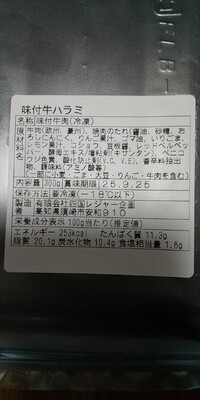 味付牛ハラミ
名称 味付牛肉(冷凍)
原 牛肉(欧州、豪州)、焼肉のたれ(醤油、砂糖、お
ろしにんにく、りんご果汁、ゴマ油、いりごま、
レモン果汁、コショウ、豆板醤、レッドベルペッ
パー、酵母エキス/増粘剤(キサンタン)、ベニコ
ウジ色素、酸化防止剤(V.C、V.E)、香辛料抽出
物、調味料(アミノ酸等)
(一部に小麦・ごま・大豆・りんご・牛肉を含む)
内容量 300g 賞味期限 25.9.25
保存方法 要冷凍(-18℃以下)
製造 有限会社四国レジャー企画
者 高知県須崎市安和910
栄養成分表示 100g当たり(推定値)
エネルギー 253kcal たんぱく質 11.3g
脂質 20.1g 炭水化物 10.4g 食塩相当量 1.8g